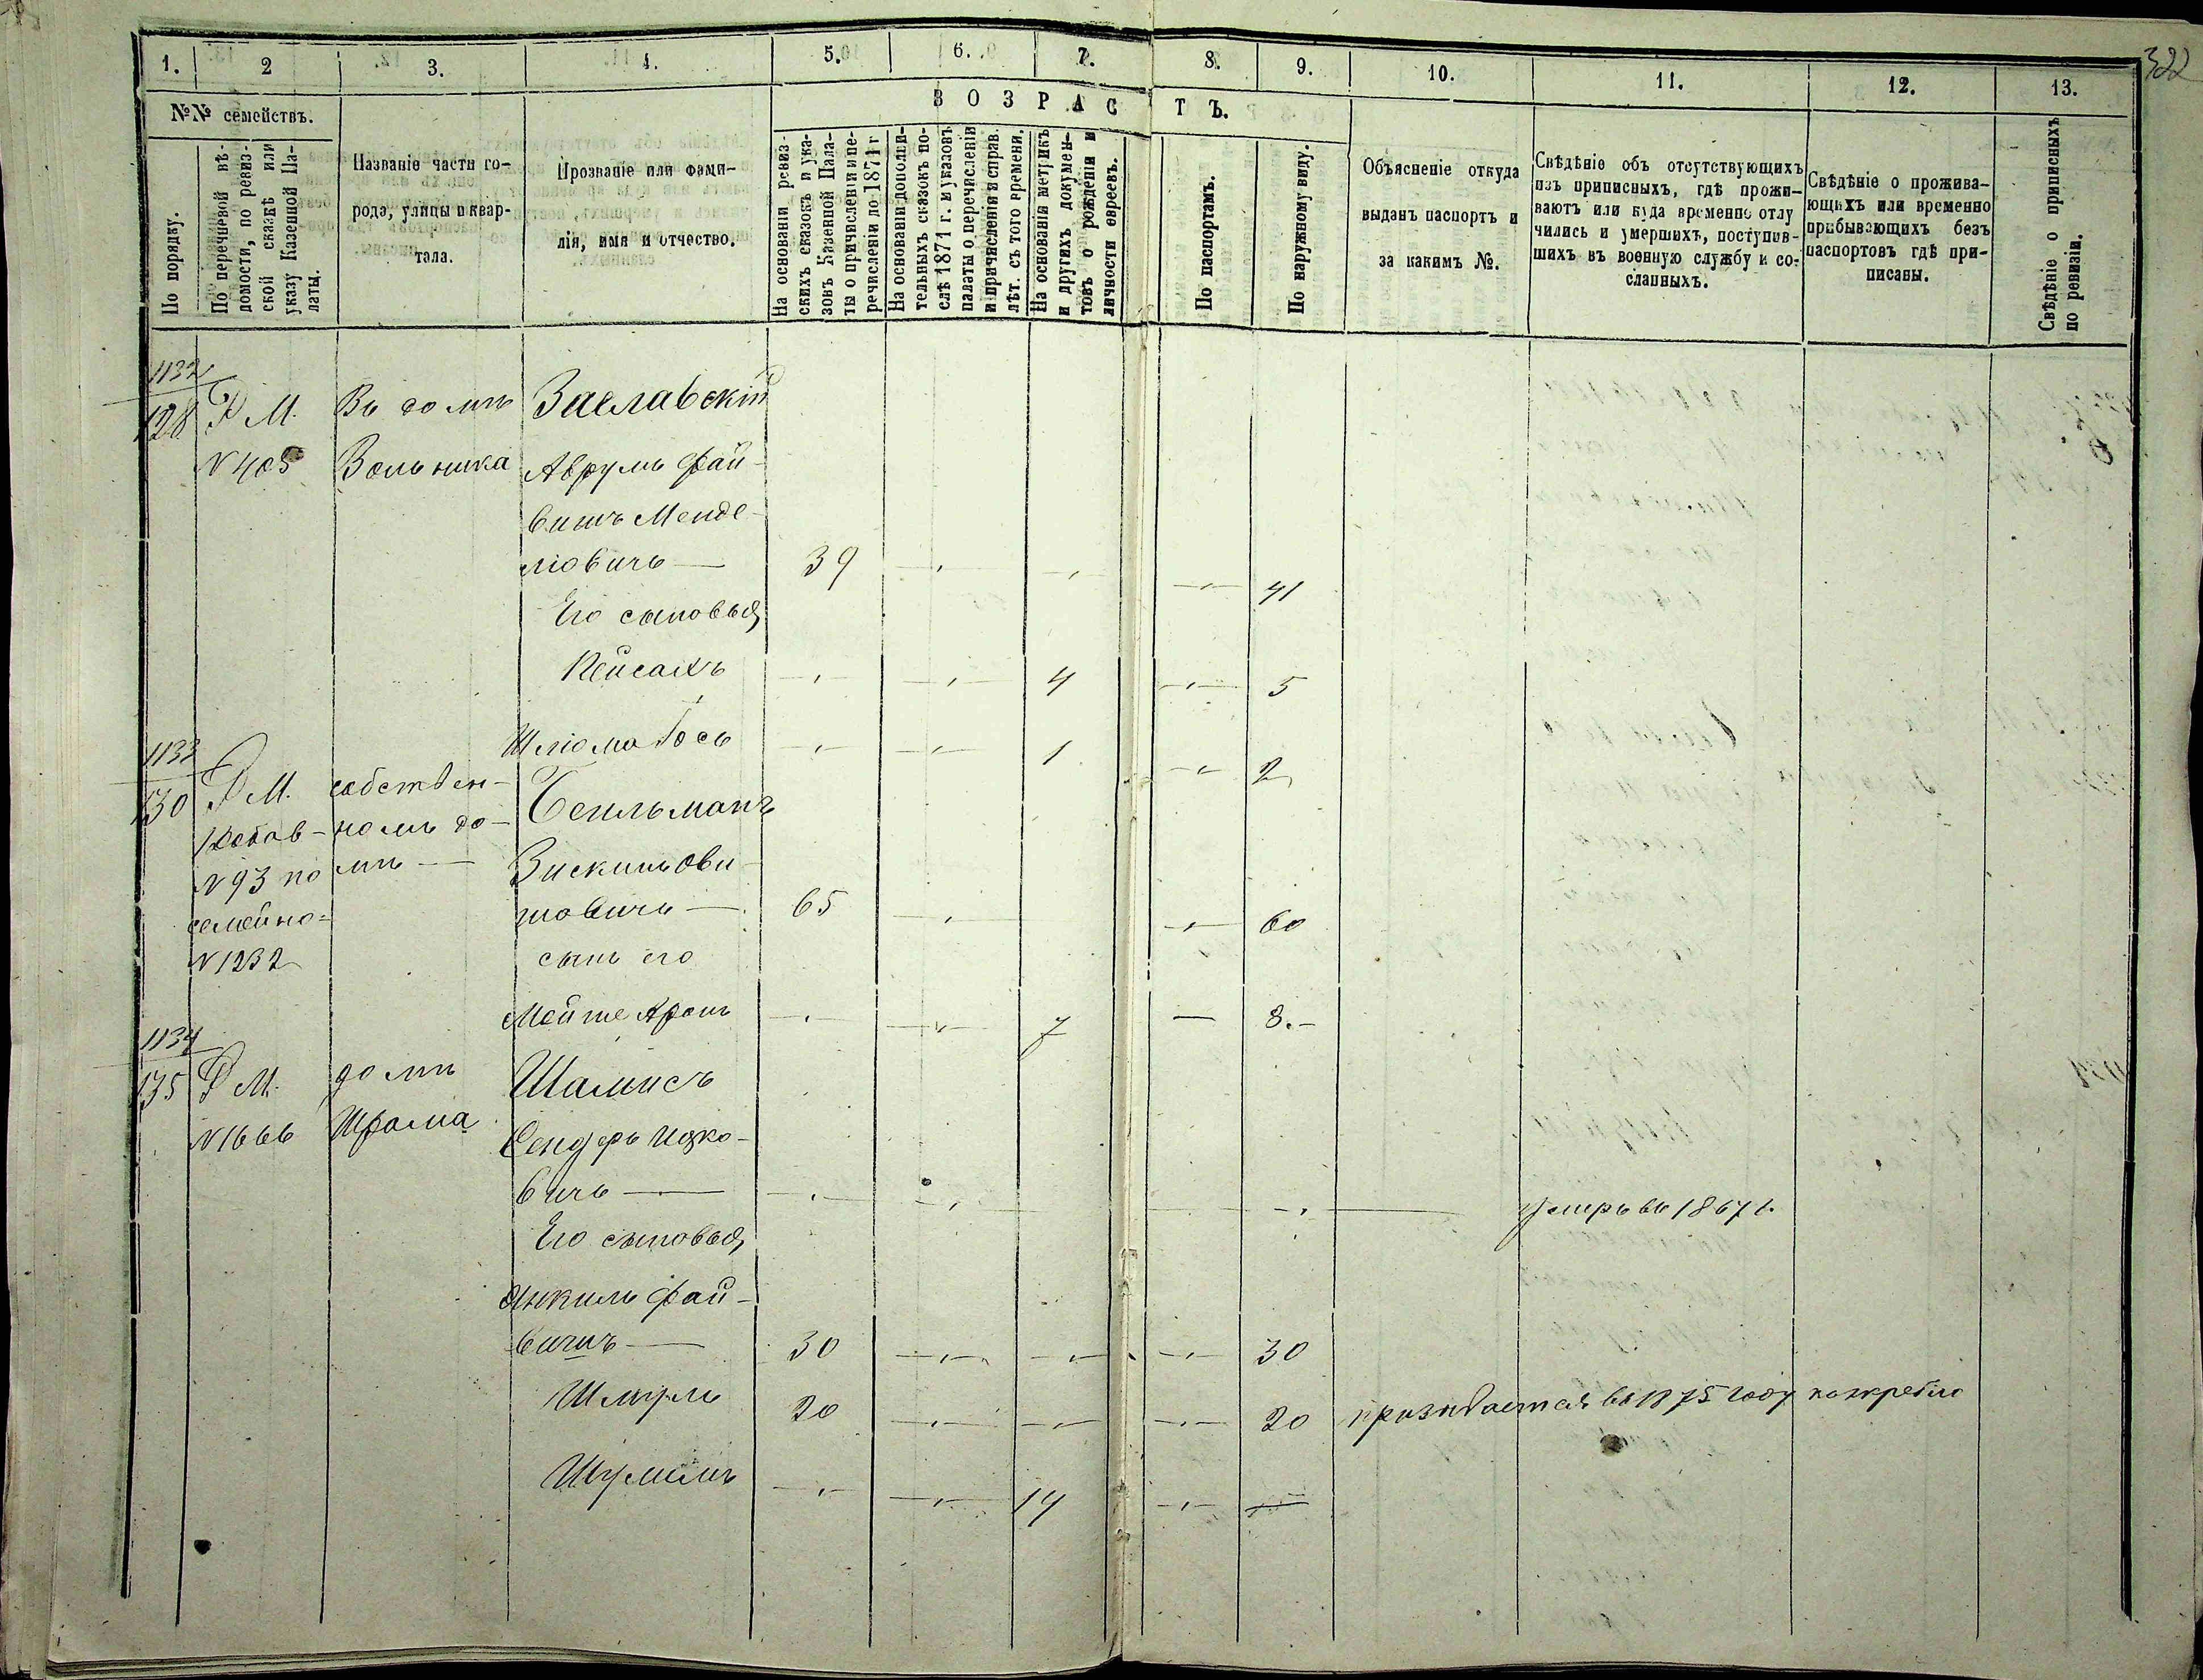 322
1. 2 3. 4. 5. 6. 7. 8. 9. 10. 11. 12. 13.
№№ семействъ.
ВОЗРАСТЪ.
По порядку.
По перечневой вѣ-
домости, по ревиз-
ской сказкѣ или
указу Казенной Па-
латы.
Названіе части го-
рода, улицы и квар-
тала.
Прозваніе или фами-
лія, имя и отчество.
На основаніи ревиз-
скихъ сказокъ и ука-
зовъ Казенной Пала-
ты о причисленіи и пе-
речисленіи до 1871 г
На основаніи дополни-
тельныхъ сказокъ по-
слѣ 1871 г. и указовъ
палаты о перечисленіи
и причисленія и справ.
лѣт. съ того времени.
На основаніи метрикъ
и другихъ докумен-
товъ о рожденіи и
личности евреевъ.
По паспортамъ.
По наружному виду.
Объясненіе откуда
выданъ паспортъ и
за какимъ №.
Свѣдѣніе объ отсутствующихъ
изъ приписныхъ, гдѣ прожи-
ваютъ или куда временно отлу
чились и умершихъ, поступив-
шихъ въ военную службу и со-
сланныхъ.
Свѣдѣніе о прожива-
ющихъ или временно
прибывающихъ безъ
паспортовъ гдѣ при-
писаны.
Свѣдѣніе о приписныхъ
по ревизіи.
1132
128 Р М. Въ домѣ Заславскій
№ 405 Вольника Аврумъ Фай-
вишъ Менде-
ліовичъ — 39 41
Его сыновья
Пейсахъ 4 5
Шліома Іось 1 2
1133
130 Р М. собствен- Бейльманъ
номъ до-
№ 93 по мѣ — Зискинъ Ови-
семейно- шовичъ — 65 60
№ 1232 сынъ его
Мейше Аронъ 7 8.-
1134
135 Р М. домѣ Шамисъ
№ 1666 Шрома Сендеръ Ицко-
вичъ — умеръ въ 1867 г.
Его сыновья
Янкиль Фай-
вишъ — 30 30
Шмуль 20 20 призывается въ 1875 году по жребію
Шулимъ 14